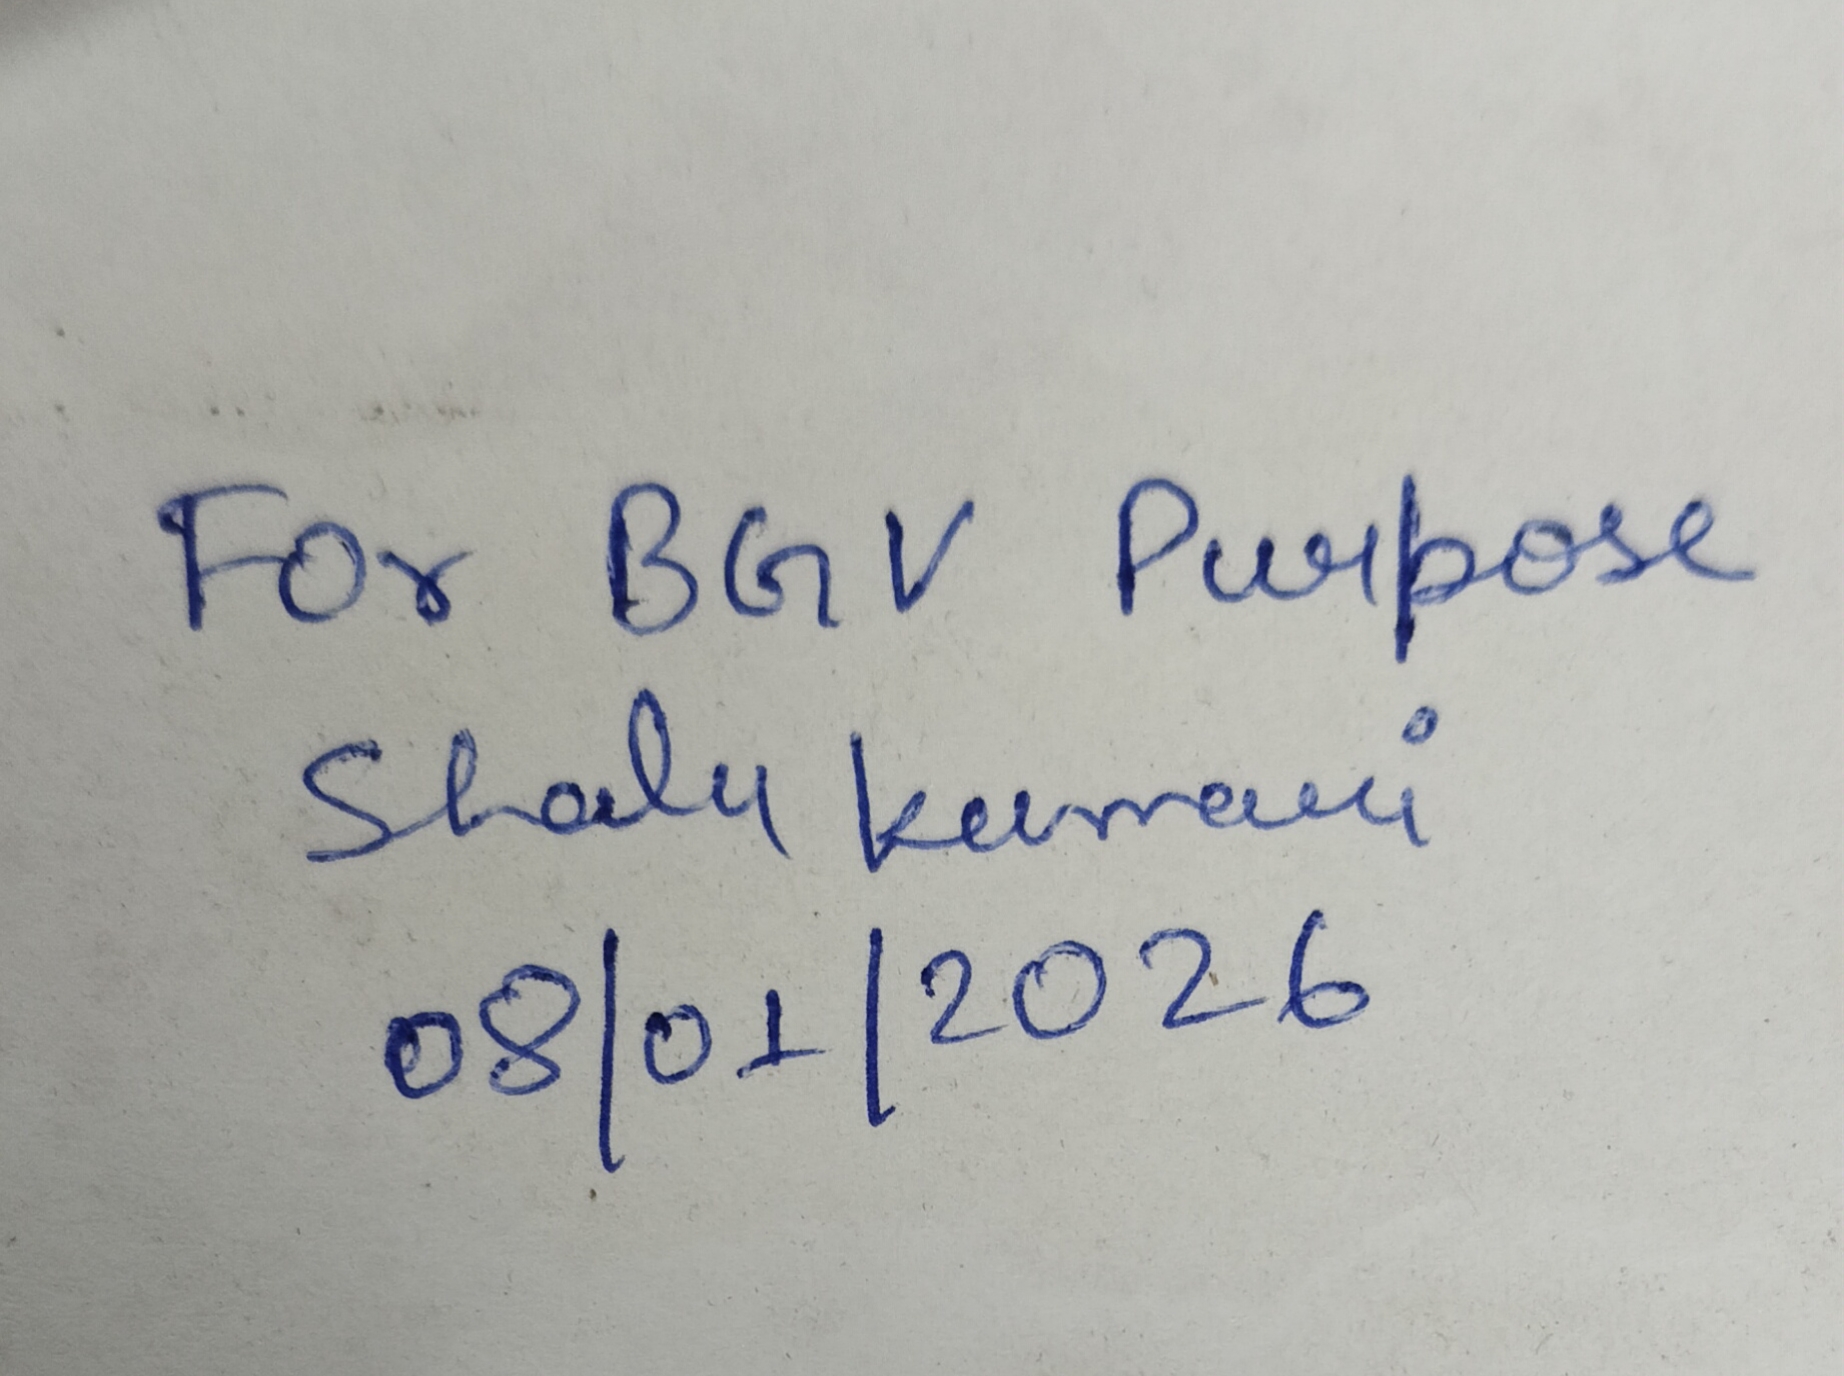 For BGV Purpose
Shalu kumari
08/01/2026